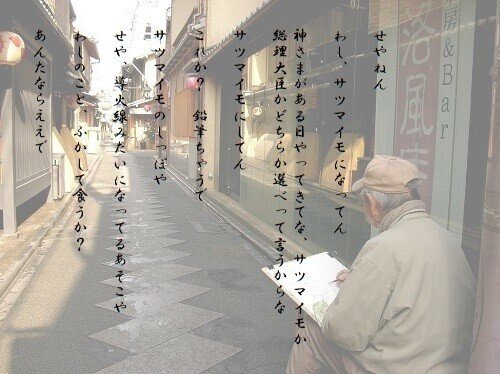 せやねん
わし、サツマイモになってん
神さまがある日やってきてな、サツマイモか
総理大臣かどちらか選べって言うからな
サツマイモにしてん
これか？　鉛筆ちゃうて
サツマイモのしっぽや
せや、導火線みたいになってるあそこや
わしのこと　ふかして食うか？
あんたならええで
房&Bar
洛風